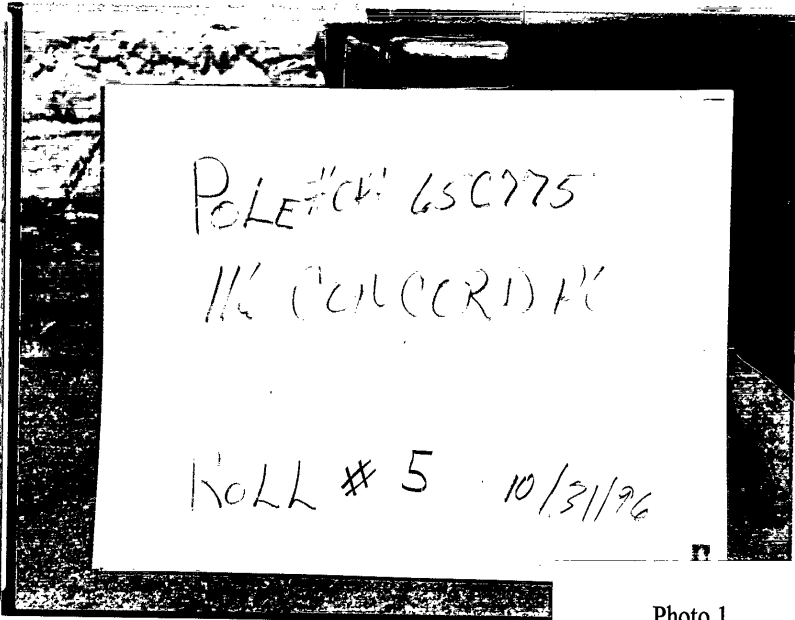 POLE # 65C775
CONCORD
ROLL # 5 10/31/96
Photo 1